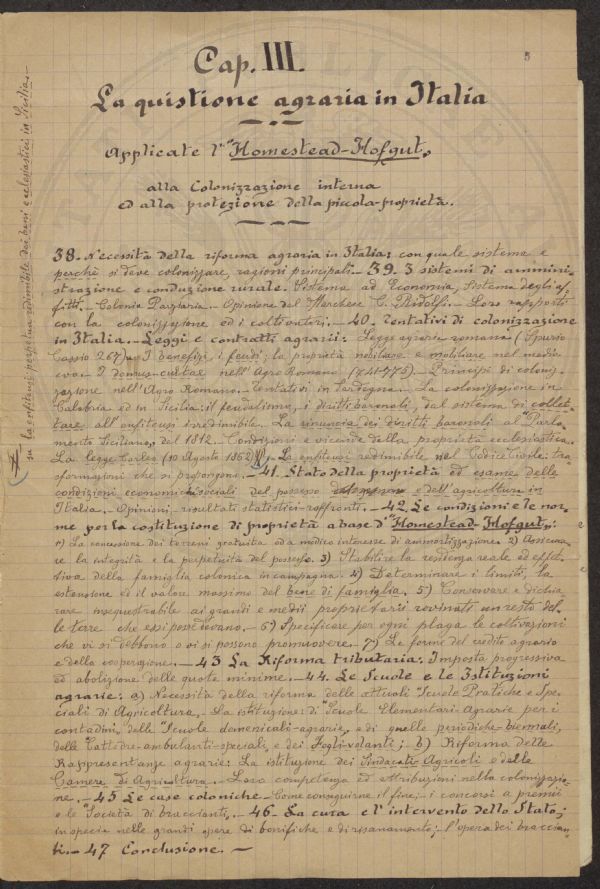 5
Cap. III.
La quistione agraria in Italia
Applicate l'"Homestead-Hofgut"
alla Colonizzazione interna
ed alla protezione della piccola-proprietà.
38. Necessità della riforma agraria in Italia; con quale sistema e
perchè si deve colonizzare, ragioni principali. - 39. 3 sistemi di ammini-
strazione e conduzione rurale. Sistema ad Economia, Sistema degli af-
fitti. - Colonia Parziaria. - Opinione del Marchese C. Ridolfi. - Loro rapporti
con la colonizzazione ed i coltivatori. - 40. Tentativi di colonizzazione
in Italia. - Leggi e contratti agrarii: Legge agraria romana (Spurio
Cassio 267). - I benefizi, i feudi; la proprietà nobiliare e mobiliare nel medio
evo. - I domus-cultae nell'Agro Romano (741-776). - Principî di coloniz-
zazione nell'Agro Romano. - Tentativi in Sardegna. - La colonizzazione in
Calabria ed in Sicilia: il feudalismo, i diritti baronali, dal sistema di collet-
tare all'enfiteusi irredimibile. La rinuncia dei diritti baronali al "Parla-
mento Siciliano" del 1812. Condizioni e vicende della proprietà ecclesiastica.
La legge Corleo (10 Agosto 1862) La enfiteusi redimibile nel Codice Civile: tra-
sformazioni che si propongono. - 41. Stato della proprietà ed esame delle
condizioni economiche sociali del possesso e dell'agricoltura in
Italia. Opinioni, risultati statistici-raffronti. - 42. Le condizioni e le nor-
me per la costituzione di proprietà a base d'"Homestead-Hofgut":
1) La concessione dei terreni gratuita od a modico interesse di ammortizzazione. 2) Assicura-
re la integrità e la perpetuità del possesso. 3) Stabilire la residenza reale ed effet-
tiva della famiglia colonica in campagna. 4) Determinare i limiti, la
estensione ed il valore massimo del bene di famiglia. 5) Conservare e dichia-
rare insequestrabile ai grandi e medii proprietarii rovinati un resto del-
le terre che essi possedevano. - 6) Specificare per ogni plaga le coltivazioni
che vi si debbono o vi si possono promuovere. - 7) Le forme del credito agrario
e della cooperazione. - 43 La Riforma tributaria: Imposta progressiva
ed abolizione delle quote minime. - 44. Le Scuole e le Istituzioni
agrarie: a) Necessità della riforma delle attuali "Scuole Pratiche e Spe-
ciali di Agricoltura. La istituzione: di "Scuole Elementari-Agrarie per i
contadini, delle "Scuole domenicali-agrarie, e di quelle periodiche-biennali,
delle "Cattedre-ambulanti-speciali, e dei Fogli-volanti; b) Riforma delle
Rappresentanze agrarie: La istituzione dei Sindacati-Agricoli e delle
Camere di Agricoltura. - Loro competenza ed attribuzioni nella colonizzazio-
ne. - 45 Le case coloniche - Come conseguirne il fine; i concorsi a premi
e le "Società di braccianti. - 46 La cura e l'intervento dello Stato;
in specie nelle grandi opere di bonifiche e di risanamento; l'opera dei braccian-
ti. - 47 Conclusione. -
su la enfiteusi perpetua redimibile dei beni ecclesiastici in Sicilia. -